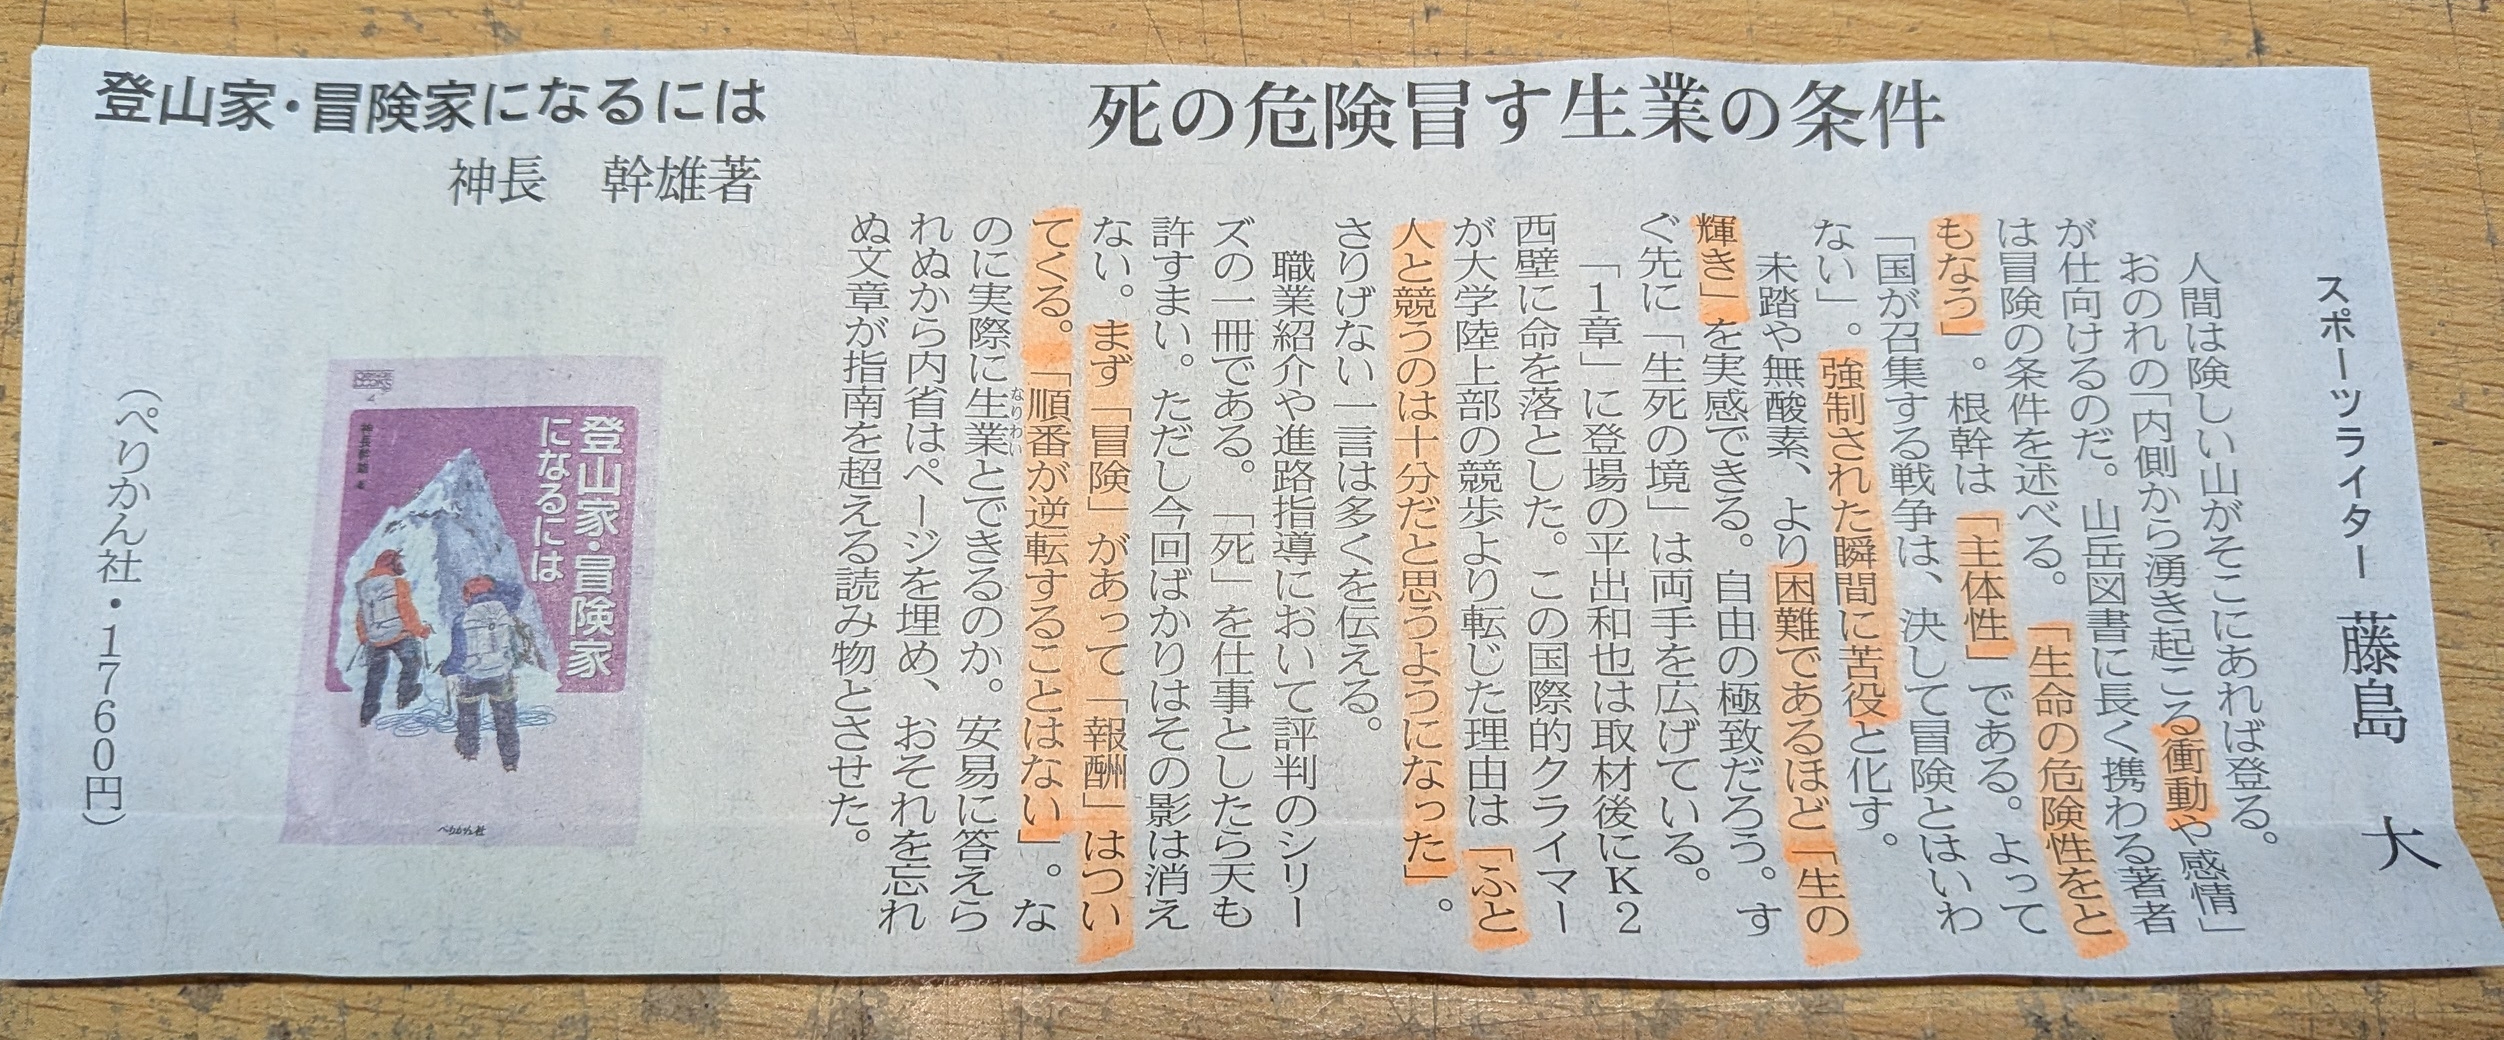 死の危険冒す生業の条件
登山家・冒険家になるには
神長 幹雄著
スポーツライター 藤島 大
人間は険しい山がそこにあれば登る。
おのれの「内側から湧き起こる衝動や感情」
が仕向けるのだ。山岳図書に長く携わる著者
は冒険の条件を述べる。「生命の危険性をと
もなう」。根幹は「主体性」である。よって
「国が召集する戦争は、決して冒険とはいわ
ない」。強制された瞬間に苦役と化す。
未踏や無酸素、より困難であるほど「生の
輝き」を実感できる。自由の極致だろう。す
ぐ先に「生死の境」は両手を広げている。
「1章」に登場の平出和也は取材後にK2
西壁に命を落とした。この国際的クライマー
が大学陸上部の競歩より転じた理由は「ふと
人と競うのは十分だと思うようになった」。
さりげない一言は多くを伝える。
職業紹介や進路指導において評判のシリー
ズの一冊である。「死」を仕事としたら天も
許すまい。ただし今回ばかりはその影は消え
ない。まず「冒険」があって「報酬」はつい
てくる。「順番が逆転することはない」。な
のに実際に生業とできるのか。安易に答えら
なりわい
れぬから内省はページを埋め、おそれを忘れ
ぬ文章が指南を超える読み物とさせた。
登山家・冒険家
になるには
神長幹雄 著
ぺりかん社
（ぺりかん社・1760円）